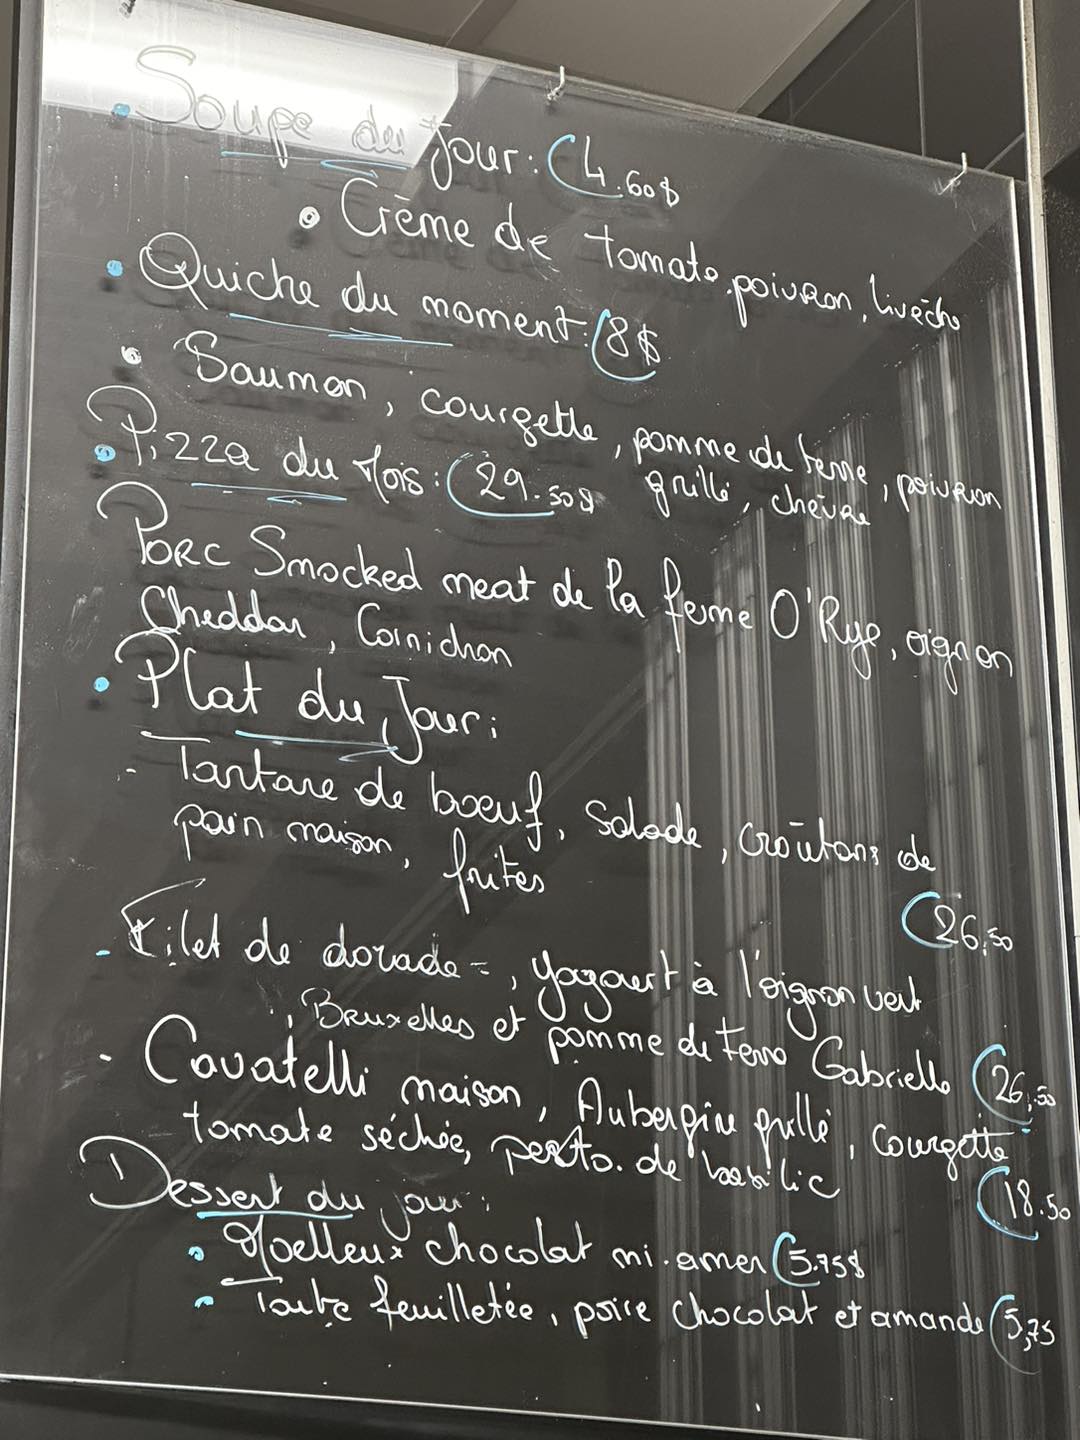 Soupe du jour: 4.60$
Crème de tomate, poivron, livèche
Quiche du moment: 8$
Saumon, courgette, pomme de terre, poivron
grillé, chèvre
Pizza du Mois: 29.50$
Porc Smocked meat de la ferme O'Rye, oignon
Cheddar, Cornichon
Plat du Jour:
- Tartare de boeuf, salade, croûtons de
pain maison, frites
26,50
- Filet de dorade, yagourt à l'oignon vert
, Bruxelles et pomme de terre Gabrielle 26,50
- Cavatelli maison, Aubergine grillé, courgette
tomate séchée, pesto. de basilic
18.50
Dessert du jour:
Moelleux chocolat mi-amer 5.75$
Tarte feuilletée, poire chocolat et amande 5,75